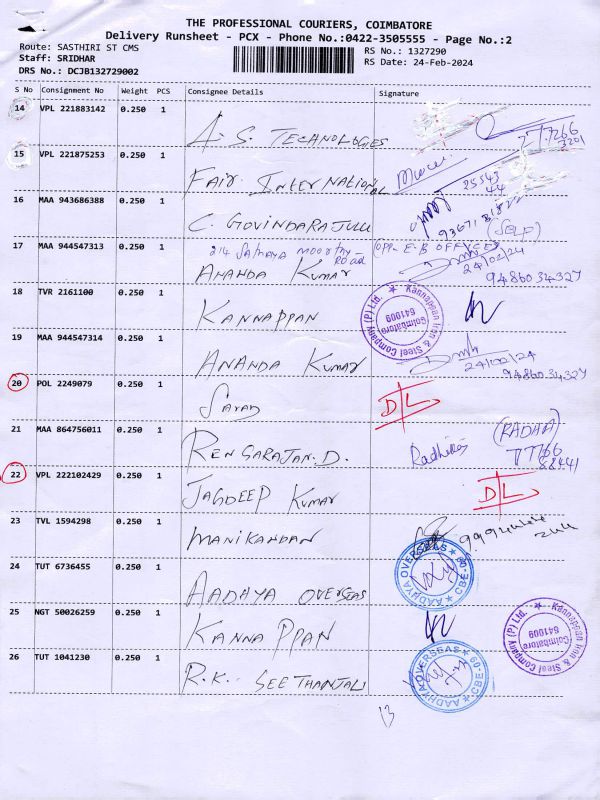 THE PROFESSIONAL COURIERS, COIMBATORE
Delivery Runsheet - PCX - Phone No.:0422-3505555 - Page No.:2
Route: SASTHIRI ST CMS RS No.: 1327290
Staff: SRIDHAR RS Date: 24-Feb-2024
DRS No.: DCJB132729002
S No Consignment No Weight PCS Consignee Details Signature
14 VPL 221883142 0.250 1
A.S. TECHNOLOGIES 77266
3201
15 VPL 221875253 0.250 1
FAIR INTERNATIONAL 25543
44
16 MAA 943686388 0.250 1
C. GOVINDARAJULU (SELF)
17 MAA 944547313 0.250 1 214 Sathya moorthy Road (OPP- E-B OFFICE)
ANANDA KUMAR 24/02/24
94860 34327
18 TVR 2161100 0.250 1
KANNAPPAN Kannappan Iron & Steel Company (P) Ltd. Coimbatore 641009
19 MAA 944547314 0.250 1
ANANDA KUMAR 24/02/24
94860 34327
20 POL 2249079 0.250 1
SARAB DL
21 MAA 864756011 0.250 1
RENGARAJAN.D. Radhika (RADAA)
77766
88441
22 VPL 222102429 0.250 1
JAGDEEP KUMAR DL
23 TVL 1594298 0.250 1
MANIKANDAN
24 TUT 6736455 0.250 1
AADHYA OVERSEAS AADHYA OVERSEAS CBE-09
25 NGT 50026259 0.250 1
KANNAPPAN Kannappan Iron & Steel Company (P) Ltd. Coimbatore 641009
26 TUT 1041230 0.250 1
R.K. SEETHANJALI AADHYA OVERSEAS CBE-09
13